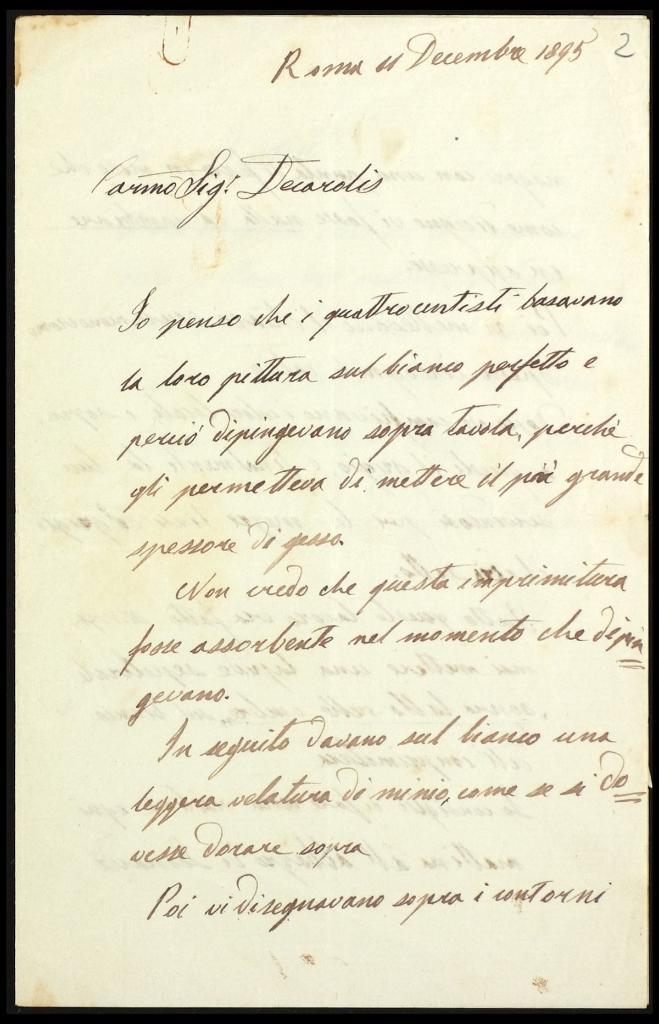 2
Roma 11 Decembre 1895
Carmo Sigr. Decarolis
Io penso che i quattrocentisti basavano
la loro pittura sul bianco perfetto e
perciò dipingevano sopra tavola, perchè
gli permetteva di mettere il più grande
spessore di gesso.
Non credo che questa imprimitura
fosse assorbente nel momento che dipin=
gevano.
In seguito davano sul bianco una
leggera velatura di minio, come se si do=
vesse dorare sopra
Poi vi disegnavano sopra i contorni